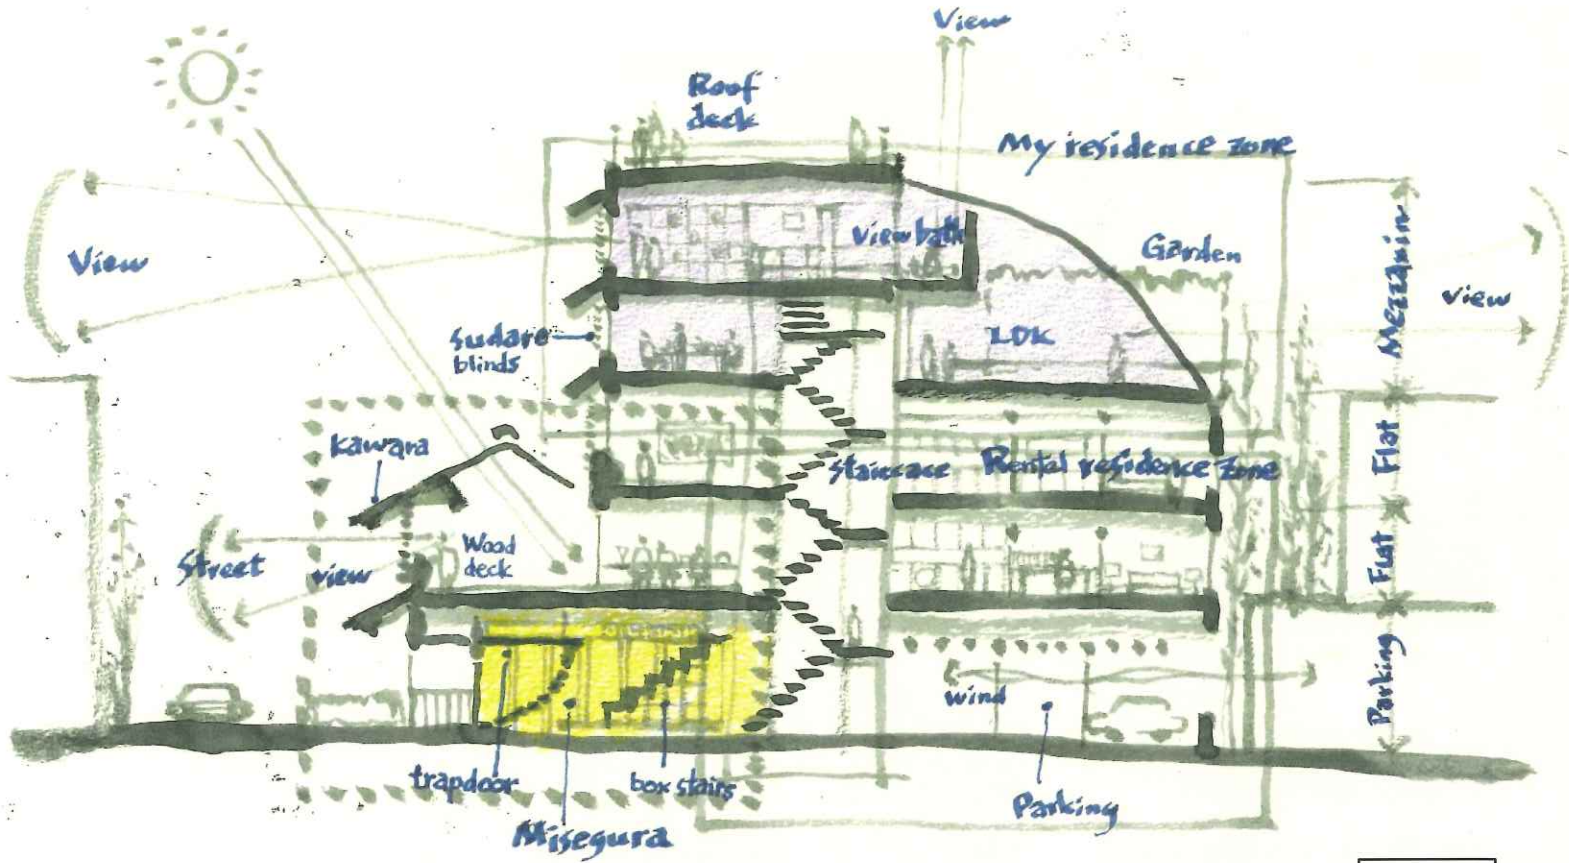 View
Roof
deck
My residence zone
View
view bath
Garden
view
Sudare
blinds
LDK
Mezzanin
kawara
Staircace
Rental residence zone
Flat
Street
view
Wood
deck
Flat
wind
Parking
trapdoor
box stairs
Misegura
Parking